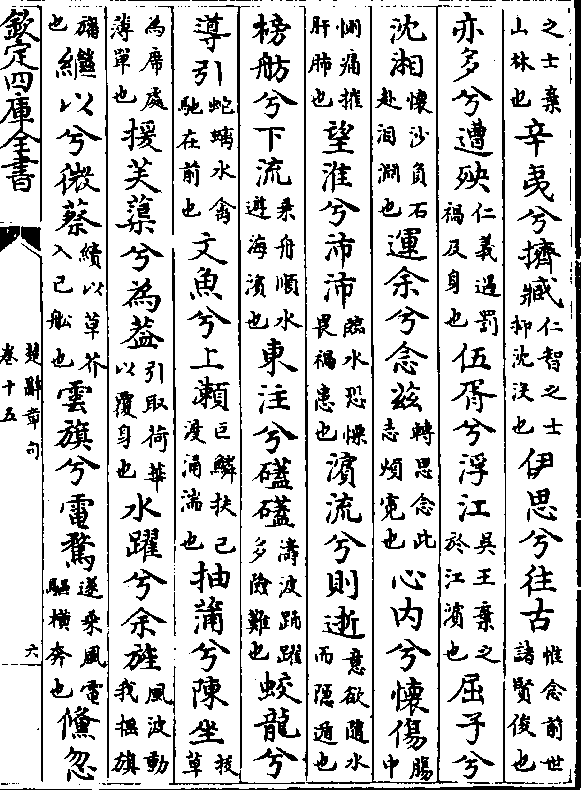 之士棄山林也辛夷兮擠臧仁智之士抑沈没也伊思兮往古惟念前世諸賢俊也
亦多兮遭殃仁義遇罰禍及身也伍胥兮浮江吳王棄之於江濱也屈子兮
沈湘懷沙負石赴汨淵也運余兮念茲轉思念此志煩寃也心内兮懷傷腸中
惻痛摧肝肺也望淮兮沛沛臨水恐慄畏禍患也濱流兮則逝意欲隨水而隱遁也
榜舫兮下流乘舟順水遊海濱也東注兮礚礚濤波踊躍多險難也蛟龍兮
導引蛇螭水禽馳在前也文魚兮上瀬巨鱗扶己渡涌湍也抽蒲兮陳坐拔草
為席處薄單也援芙蕖兮為蓋引取荷華以覆身也水躍兮余旌風波動我摇旗
旛也繼以兮微蔡續以草芥入己船也雲旗兮電騖遂乘風電驅横奔也儵忽
欽定四庫全書
楚辭章句
卷十五
六